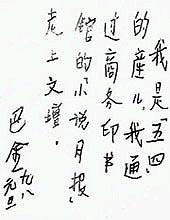 我是「五、四」
的産儿,我通
过商务印书
館的《小说月报》
走上文壇。
巴金
元旦